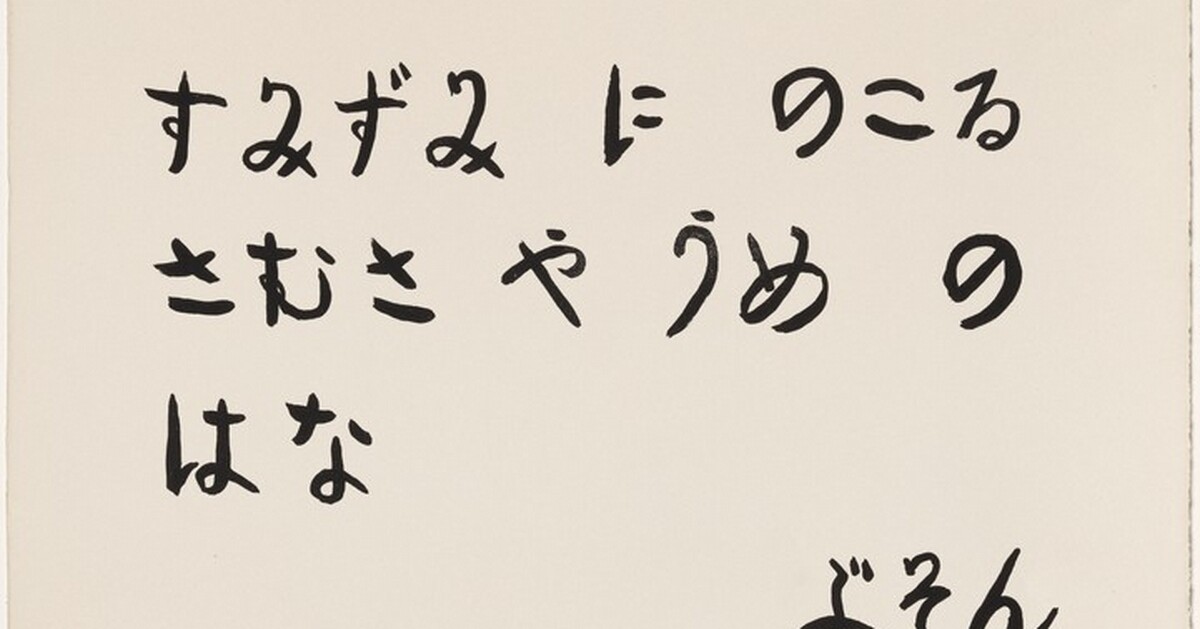 すみずみ に のこる
さむさ や うめ の
はな
ぶそん